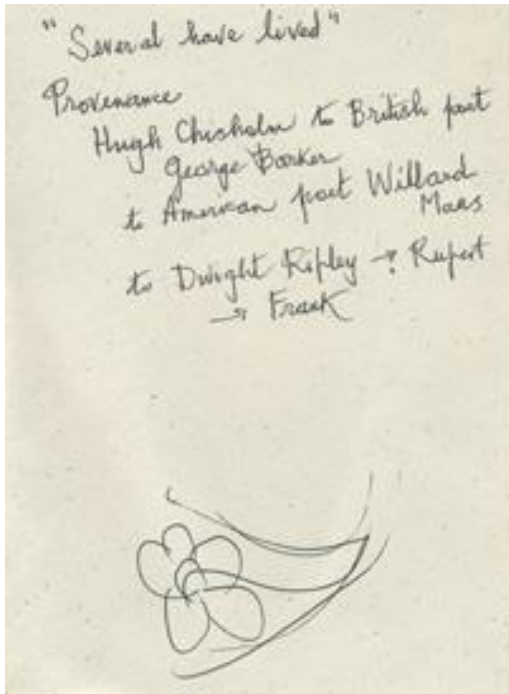 "Several have lived"
Provenance
Hugh Chisholm to British poet
George Barker
to American poet Willard
Maas
to Dwight Ripley → Rupert
→ Frank